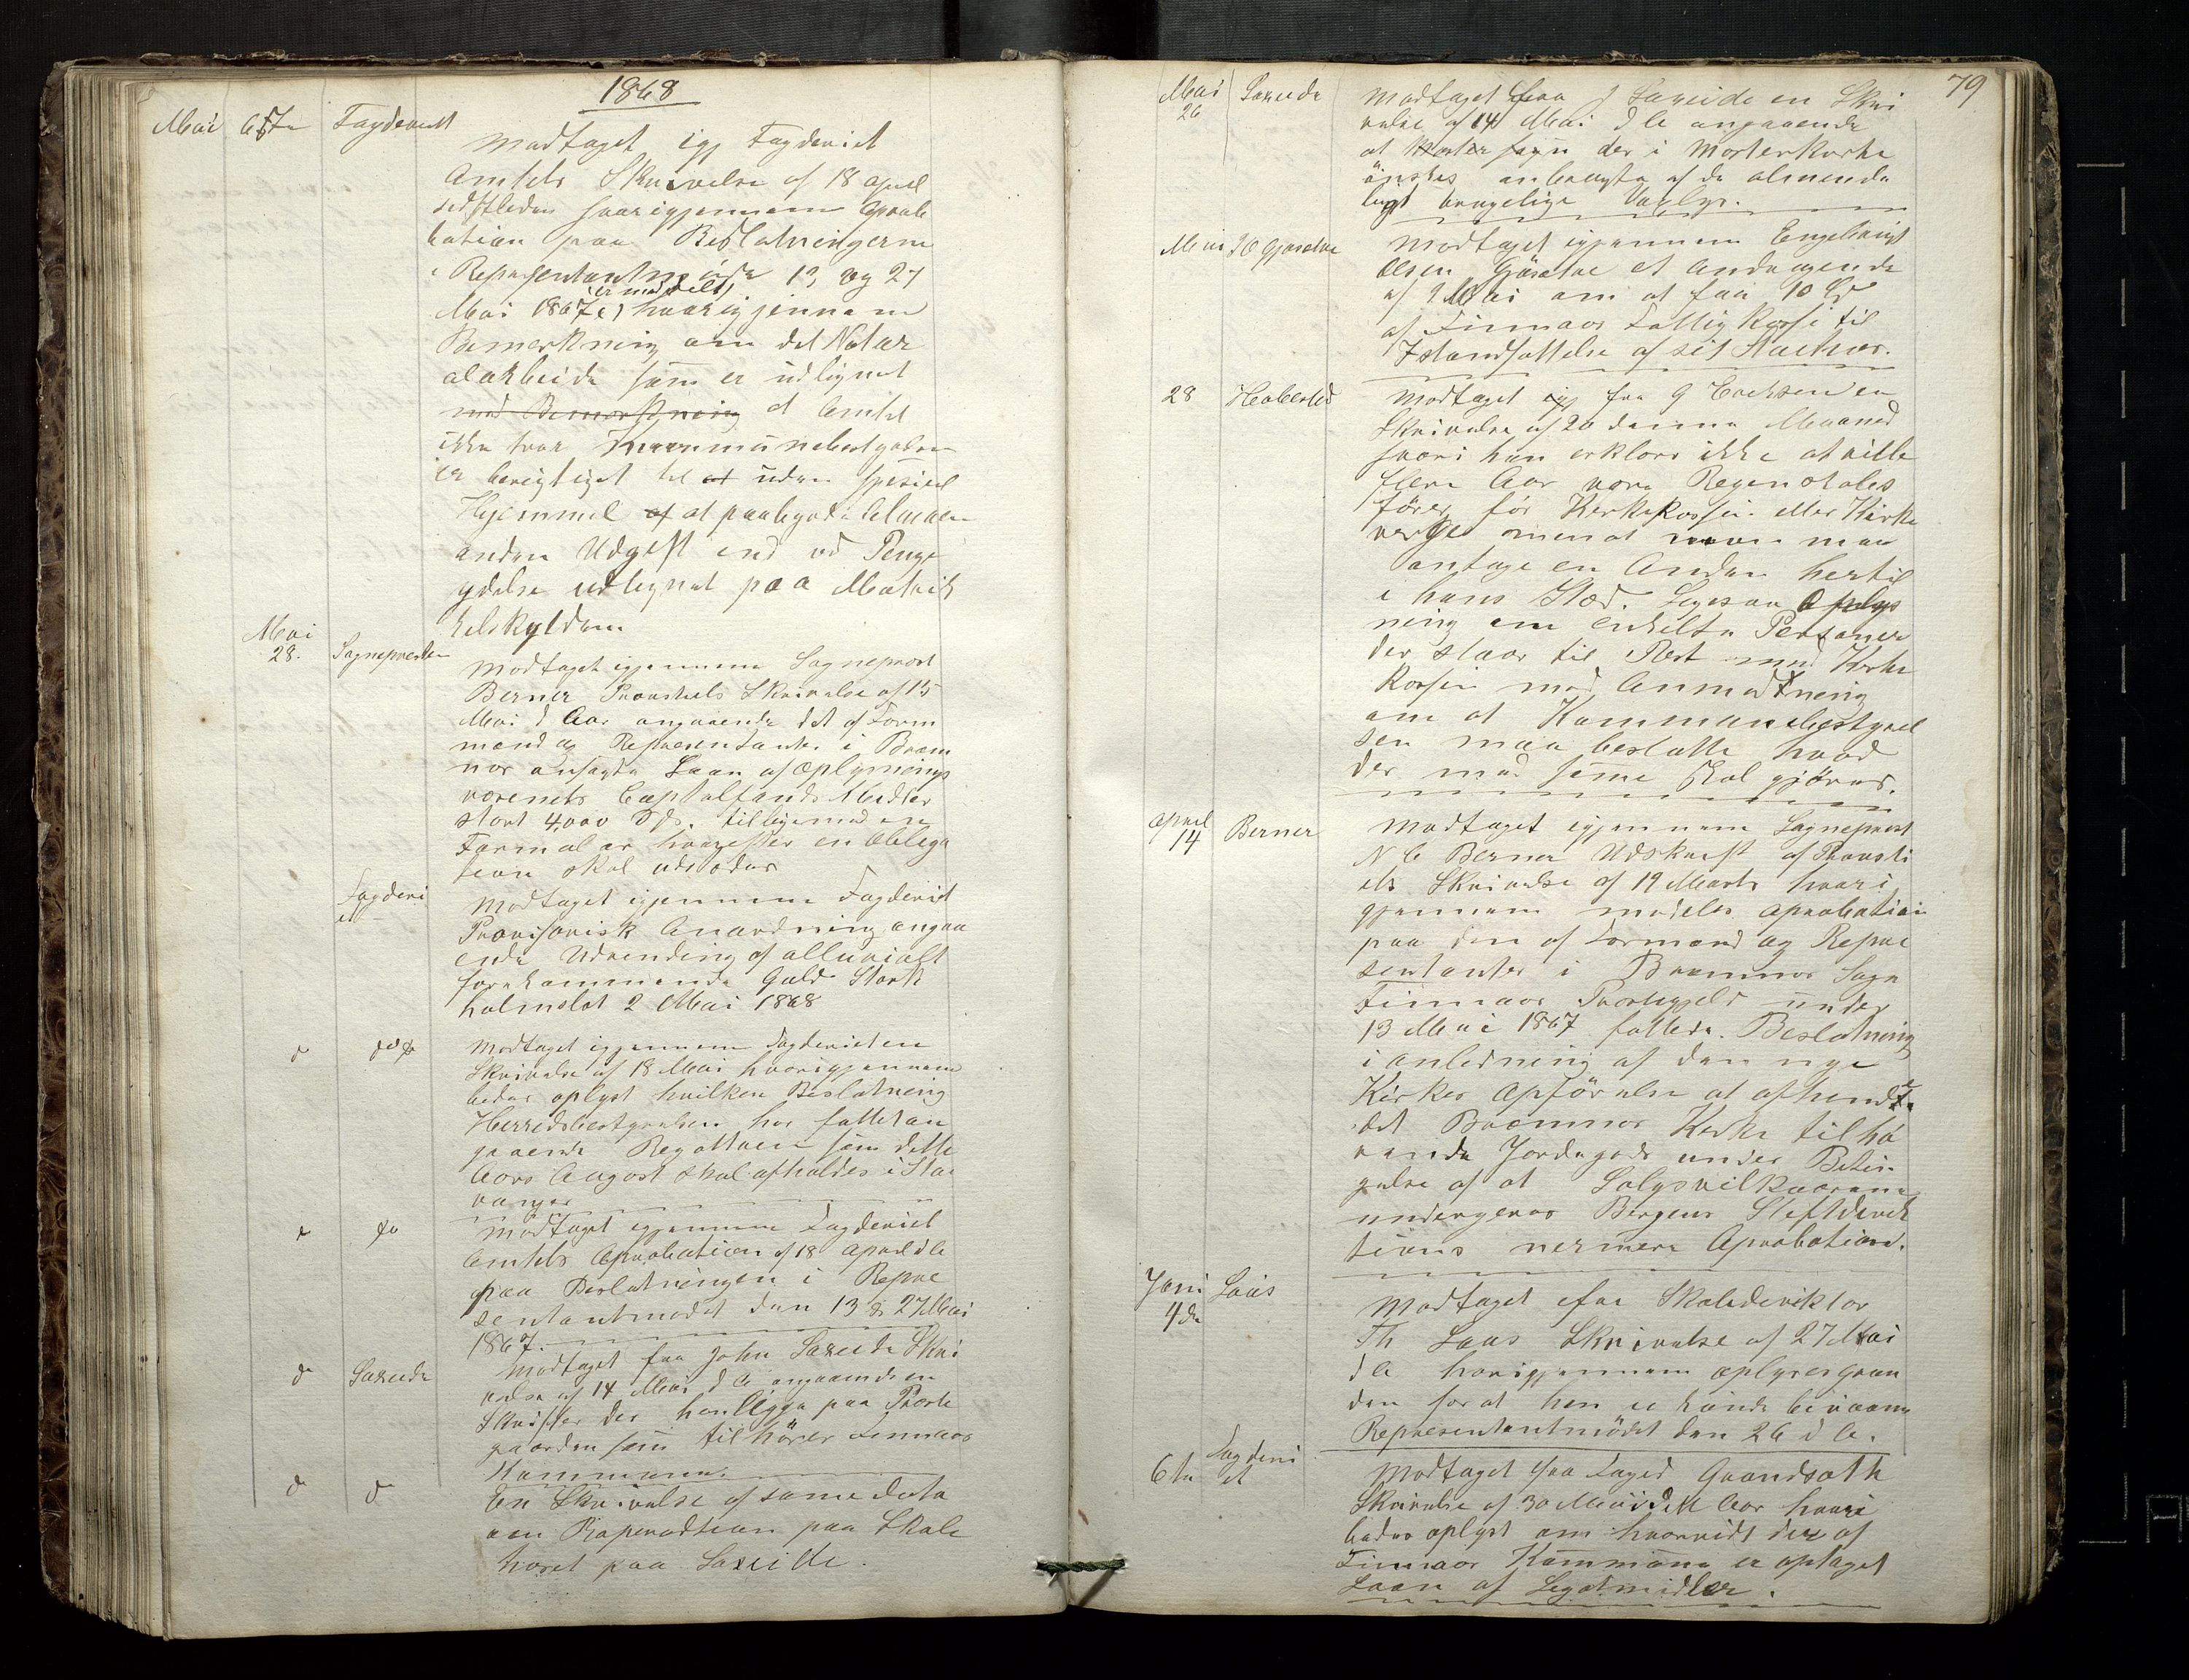 1868
Mai 6te Fogderiet
Modtaget igj Fogderiet
Amtets Skrivelse af 18 April
sidstleden hvorigjennem Aprobe
bation paa Beslutningerne
i Representantmøde 13 og 27
er meddelt
Mai 1867 hvorigjennem
Bemerkning om det Natur
alarbeide som er udlignet
med Bemerkning at Amtet
ikke tror Kommunebestyrelsen
er berigtiget til at uden spesiel
Hjemmel af at paabyde Almuen
anden Udgift end ved Penge
ydelse udlignet paa Matrik
kelskylden
Mai
28. Sognepresten
Modtaget igjennem Sogneprest
Berner Provstiets Skrivelse af 15
Mai d Aar angaaende det af Form
mend og Representanter i Brem
nes ansøgte Laan af Oplysnings
vesenets Capitalfonds Midler
stort 4,000 Spd. tilligemed en
Formular hvorefter en Obliga
tion skal udstedes
Fogderi
et
Modtaget igjennem Fogderiet
Provisorisk Anordning angaa
ende Udvinding af alluvialt
forekommende Guld Stock
holmslot 2 Mai 1868
do do
Modtaget igjennem Fogderiet en
Skrivelse af 18 Mai hvorigjennem
bedes oplyst hvilken Beslutning
Herredsbestyrelsen har fattet an
gaaende Regattaen som dette
Aars August skal afholdes i Sta
vanger
do do
Modtaget igjennem Fogderiet
Amtets Aprobation af 18 April d A
paa Beslutningen i Repre
sentantmødet den 13 & 27 Mai
1867.
do Sareide
Modtaget fra John Sareide Skri
velse af 14 Mai d A angaaende en
Skrifter der henligger paa Preste
gaarden som tilhører Finnaas
Kommune.
do do
En Skrivelse af samme Dato
om Reperadtion paa Skole
huset paa Sareide.
79
Mai
26 Sareide
Modtaget fra J Sareide en Skri
velse af 14 Mai d A angaaende
at Moster sogn der i Mosterkirke
ønskes anbragte af de almende
ligt brugelige Voxlys.
Mai 20 Gjøsetve
Modtaget igjennem Engelbrigt
Olsen Gjøsetve et Andragende
af 9 Mai om at faa 10 Spd
af Finnaas Fattigkasse til
Istandsættelse af sit Stuehus.
28 Habested
Modtaget igj fra G Eriksen en
Skrivelse af 20 denne Maaned
hvori han erklærer ikke at ville
flere Aar være Regenskabs
fører for Kirkekassen eller Kirke
verge men at man maa
antage en Anden hertil
i hans Sted. Ligesaa Oplys
ning om enkelte Personer
der staar til Rest med Kirke
kassen med Anmodtning
om at Kommunebestyrel
sen maa beslutte hvad
der med samme skal gjøres.
April
14 Berner
Modtaget igjennem Sogneprest
N C Berner Udskrift af Provsti
ets Skrivelse af 19 Marts hvori
gjennem meddeles Aprobation
paa den af Formend og Repre
sentanter i Bremnes Sogn
Finnaas Prestegjeld under
13 Mai 1867 fattede Beslutning
i anledning af den nye
Kirkes Opførelse at afhende
det Bremnes Kirke tilhø
rende Jordegods under Betin
gelse af at Salgsvilkaarene
undergives Bergens Stiftsdirek
tions nermere Aprobation.
Juni
4de Laus
Modtaget efra Skoledirektør
Th Laus Skrivelse af 27 Mai
d A hvorigjennem oplyses grun
den for at han ei kunde bivaane
Representantmødet den 26 d A.
6te Fogderi
et
Modtaget fra Foged Grandsoth
Skrivelse af 30 Mai dette Aar hvori
bedes oplyst om hvorvidt der af
Finnaas Kommune er optaget
Laan af Legatmidler.